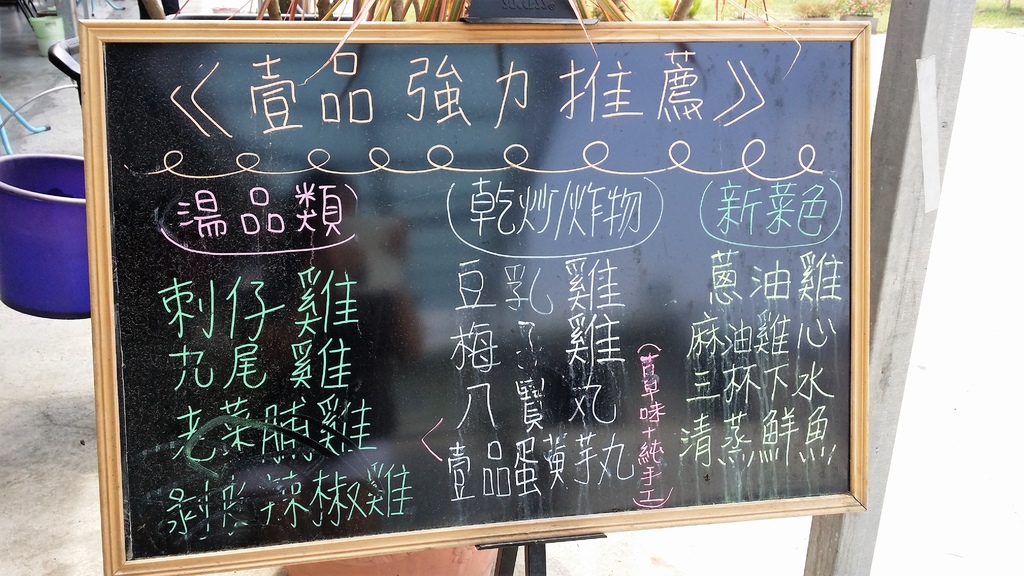 《壹品強力推薦》
湯品類
刺仔雞
九尾雞
老菜脯雞
剝 辣椒雞
乾炒/炸物
豆乳雞
梅子雞
八寶丸
壹品蛋黃芋丸
(古早味+純手工)
新菜色
蔥油雞
麻油雞心
三杯下水
清蒸鮮魚